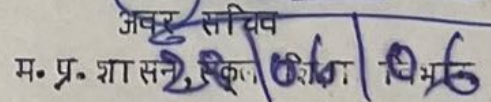 अवर सचिव
म. प्र. शासन, स्कूल शिक्षा विभाग